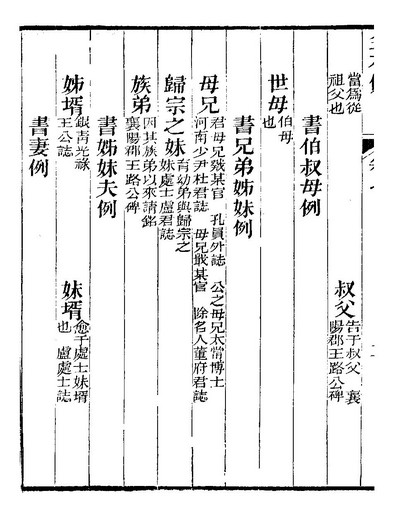 當為從
祖父也
叔父
告于叔父 襄
陽郡王路公碑
書伯叔母例
世母
伯母
也
書兄弟姊妹例
母兄
君母兄戣某官 孔員外誌 公之母兄太常博士
河南少尹杜君誌 母兄戢某官 除名人董府君誌
歸宗之妹
有幼弟與歸宗之
妹處士盧君誌
族弟
因其族弟以來請銘
襄陽郡王路公碑
書姊妹夫例
姊壻
銀青光祿
王公誌
妹壻
愈于處士妹壻
也 盧處士誌
書妻例